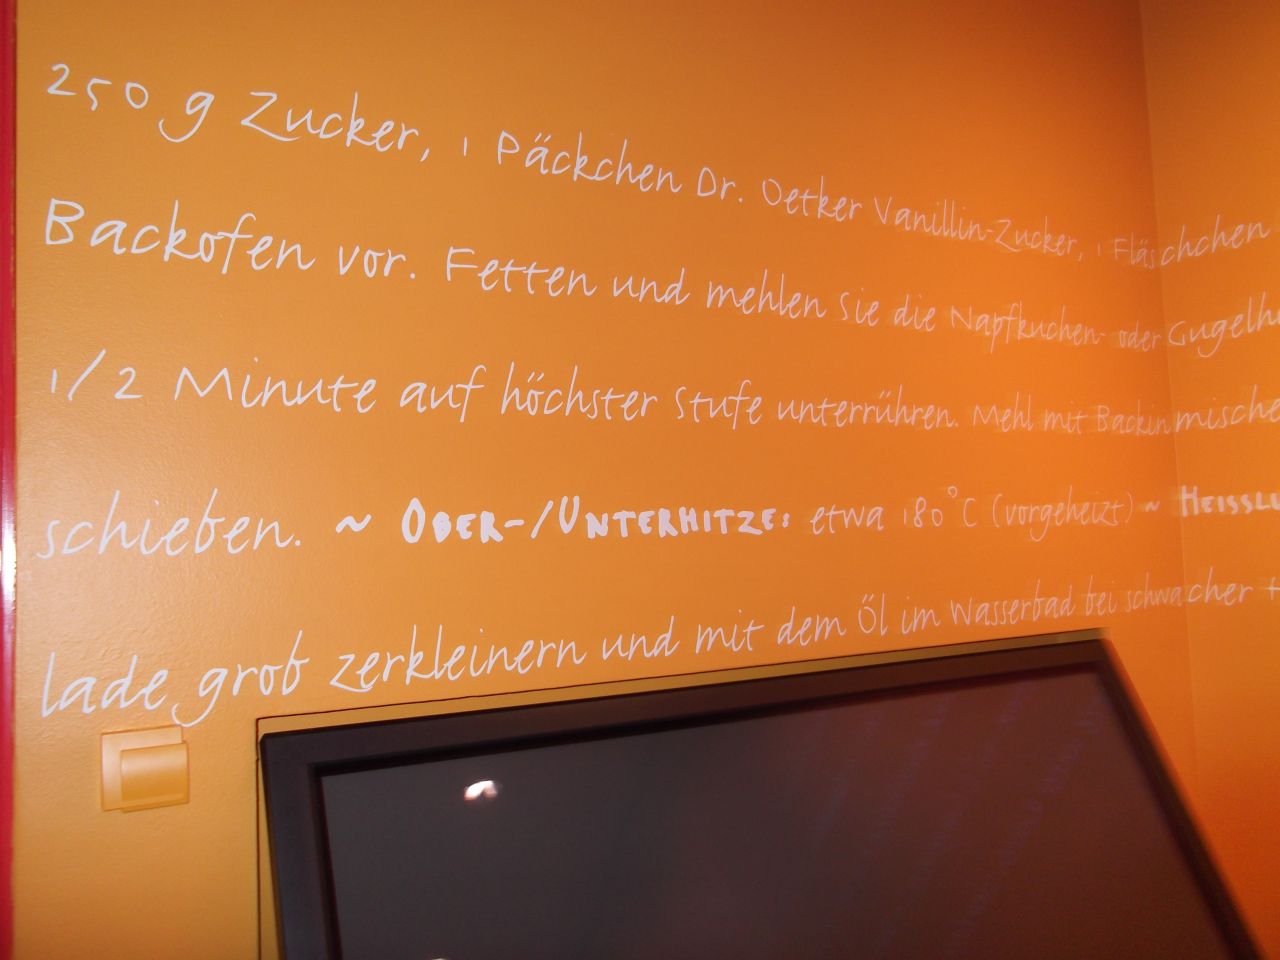 250 g Zucker, 1 Päckchen Dr. Oetker Vanillin-Zucker, 1 Fläschchen
Backofen vor. Fetten und mehlen Sie die Napfkuchen- oder Gugelh
1/2 Minute auf höchster Stufe unterrühren. Mehl mit Backin mische
schieben. ~ OBER-/UNTERHITZE: etwa 180°C (vorgeheizt) ~ HEISSLU
lade grob zerkleinern und mit dem Öl im Wasserbad bei schwacher